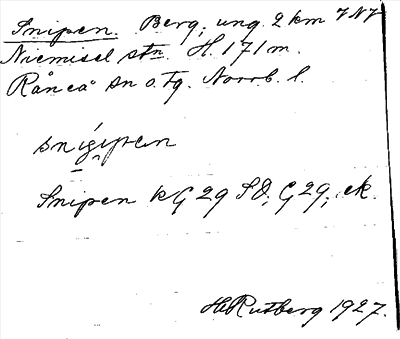 Snipen. Berg, ung. 2 km
Niemisel stn. H. 171 m.
Råneå sn o. tg. Norrb. l.
Snipen kG29 SO, G29, ek.
H Rutberg 1927.